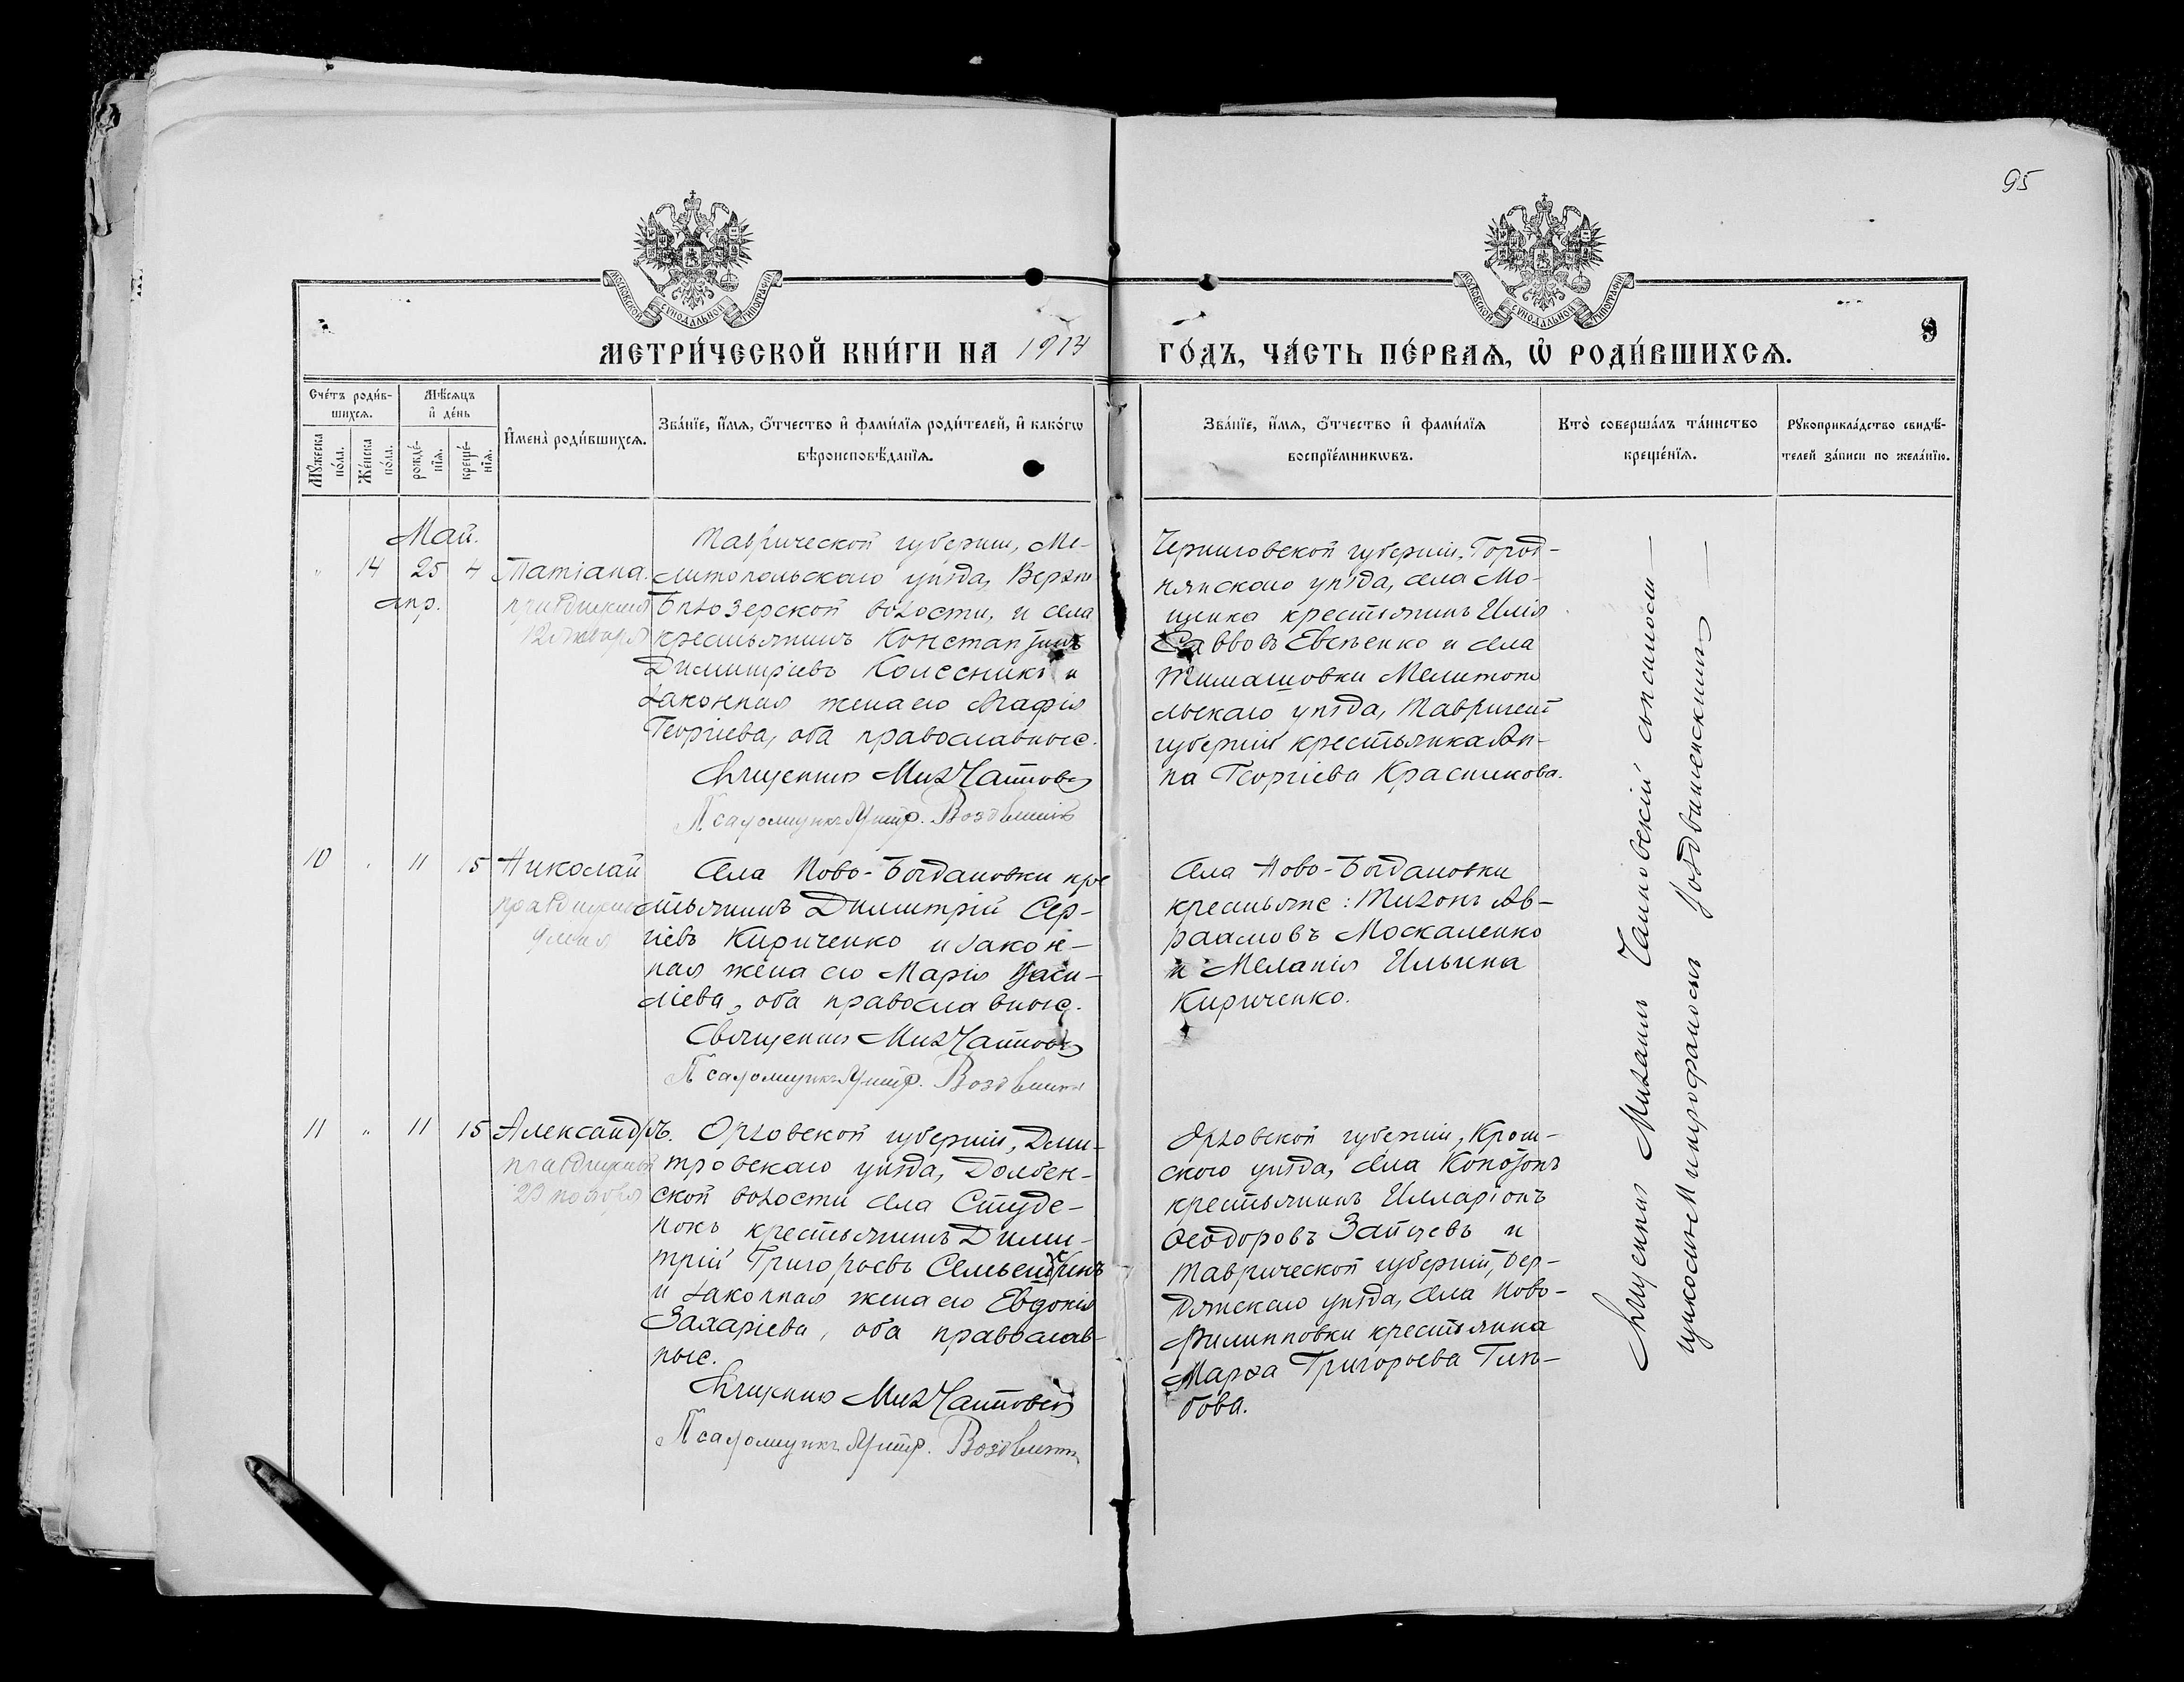 95
МОСКОВСКОЙ СѴНОДАЛЬНОЙ ТИПОГРАФІИ
МОСКОВСКОЙ СѴНОДАЛЬНОЙ ТИПОГРАФІИ
МЕТРИ́ЧЕСКОЙ КНИ́ГИ НА 1914
ГО́ДЪ, ЧА́СТЬ ПЕ́РВАѦ, Ѡ҆ РОДИ́ВШИХСѦ.
Сче́тъ роди́в-
шихсѧ.
Мꙋ́жеска
по́ла.
Же́нска
по́ла.
Мѣ́сѧцъ
и҆ де́нь
рожде́-
нїѧ.
креще́-
нїѧ.
И҆мена̀ роди́вшихсѧ.
Зва́нїе, и҆́мѧ, ѻ҆́тчество и҆ фами́лїѧ роди́телей, и҆ како́гѡ
вѣроисповѣ́данїѧ.
Зва́нїе, и҆́мѧ, ѻ҆́тчество и҆ фами́лїѧ
воспрїе́мникѡвъ.
Кто̀ соверша́лъ та́инство
креще́нїѧ.
Рꙋкоприкла́дство свидѣ́-
телей за́писи по жела́нїю.
Май.
" 14 25 4
апр.
Татіана.
праздникъ
12 января
Таврической губерніи, Ме-
литопольскаго уѣзда, Верхне-
Бѣлозерской волости, и села
крестьянинъ Константинъ
Димитріевъ Колесникъ и
законная жена его Агафія
Георгіева, оба православные.
Священникъ Мих Чайковскій
Псаломщикъ Митр. Воздвиженскій
Черниговской губерніи, Город-
нянскаго уѣзда, села Мо-
щенка крестьянинъ Илія
Савовъ Евсѣенко и села
Тимашовки Мелитопо
льскаго уѣзда, Таврической
губерніи крестьянка Ан-
на Георгіева Красникова.
10 " 11 15 Николай
праздникъ
9 мая
Села Ново-Богдановки кре
стьянинъ Димитрій Сер-
гіевъ Кириченко и закон-
ная жена его Марія Васи-
ліева, оба православные.
Священникъ Мих Чайковскій
Псаломщикъ Митр. Воздвиженскій
Села Ново-Богдановки
крестьяне: Тихонъ Ав-
раамовъ Москаленко
и Меланія Ильина
Кириченко.
11 " 11 15 Александръ.
праздникъ
23 ноября
Орловской губерніи, Дми-
тровскаго уѣзда, Долбен-
ской волости села Студе-
нокъ крестьянинъ Дими-
трій Григорьевъ
и законная жена его Евдокія
Захаріева, оба православ-
ные.
Священникъ Мих Чайковскій
Псаломщикъ Митр. Воздвиженскій
Орловской губерніи, Кром-
ского уѣзда, села
крестьянинъ Илларіонъ
Ѳеодоровъ Зайцевъ и
Таврической губерніи, Бер-
дянскаго уѣзда, села Ново-
Филипповки крестьянка
Марѳа Григорьева Глѣ-
бова.
Священникъ Михаилъ Чайковскій съ псаломщи-
комъ Митрофаномъ Воздвиженскимъ